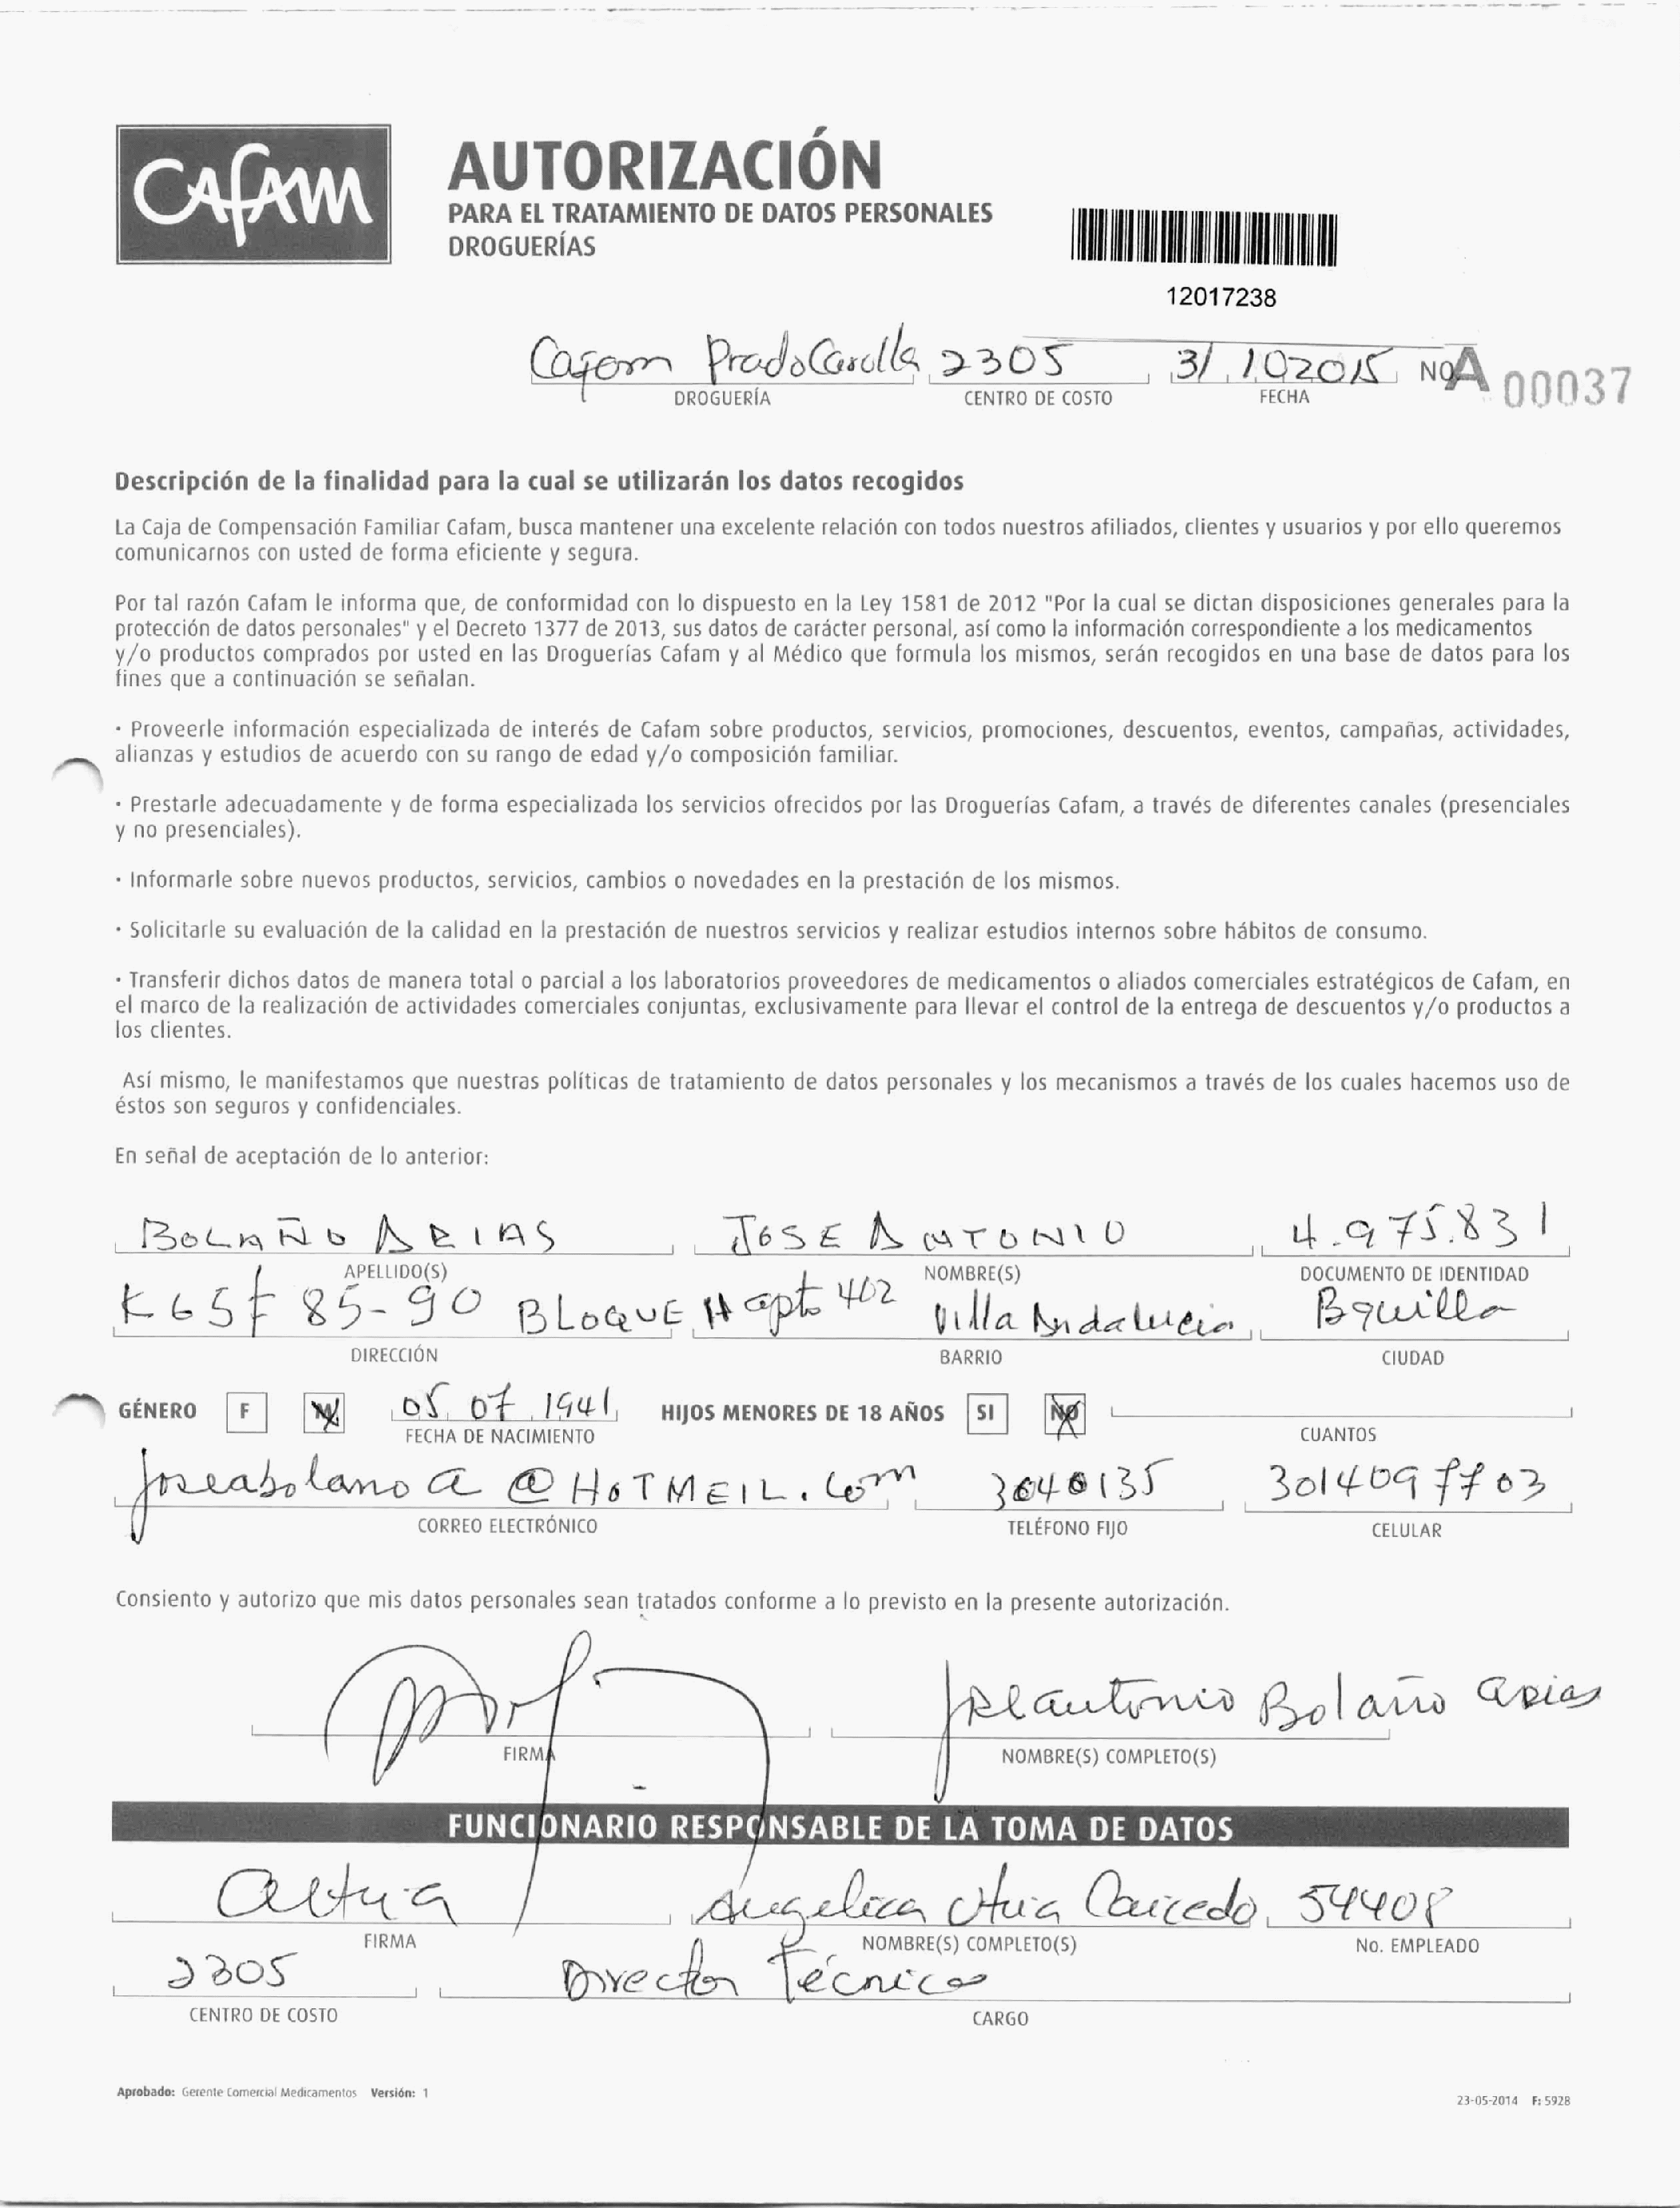 CAFAM
AUTORIZACIÓN
PARA EL TRATAMIENTO DE DATOS PERSONALES
DROGUERÍAS
12017238
Cafam Prado Carulla 2305 31 10 2015 NO A 00037
DROGUERÍA CENTRO DE COSTO FECHA
Descripción de la finalidad para la cual se utilizarán los datos recogidos
La Caja de Compensación Familiar Cafam, busca mantener una excelente relación con todos nuestros afiliados, clientes y usuarios y por ello queremos
comunicarnos con usted de forma eficiente y segura.
Por tal razón Cafam le informa que, de conformidad con lo dispuesto en la Ley 1581 de 2012 "Por la cual se dictan disposiciones generales para la
protección de datos personales" y el Decreto 1377 de 2013, sus datos de carácter personal, así como la información correspondiente a los medicamentos
y/o productos comprados por usted en las Droguerías Cafam y al Médico que formula los mismos, serán recogidos en una base de datos para los
fines que a continuación se señalan.
· Proveerle información especializada de interés de Cafam sobre productos, servicios, promociones, descuentos, eventos, campañas, actividades,
alianzas y estudios de acuerdo con su rango de edad y/o composición familiar.
· Prestarle adecuadamente y de forma especializada los servicios ofrecidos por las Droguerías Cafam, a través de diferentes canales (presenciales
y no presenciales).
· Informarle sobre nuevos productos, servicios, cambios o novedades en la prestación de los mismos.
· Solicitarle su evaluación de la calidad en la prestación de nuestros servicios y realizar estudios internos sobre hábitos de consumo.
· Transferir dichos datos de manera total o parcial a los laboratorios proveedores de medicamentos o aliados comerciales estratégicos de Cafam, en
el marco de la realización de actividades comerciales conjuntas, exclusivamente para llevar el control de la entrega de descuentos y/o productos a
los clientes.
Así mismo, le manifestamos que nuestras políticas de tratamiento de datos personales y los mecanismos a través de los cuales hacemos uso de
éstos son seguros y confidenciales.
En señal de aceptación de lo anterior:
BOLAÑO ARIAS JOSE ANTONIO 4.975.831
APELLIDO(S) NOMBRE(S) DOCUMENTO DE IDENTIDAD
K 65F 85-90 BLOQUE H apto 402 Villa Andalucia Bquilla
DIRECCIÓN BARRIO CIUDAD
GÉNERO F M 05 07 1941 HIJOS MENORES DE 18 AÑOS SI NO
FECHA DE NACIMIENTO CUANTOS
Joseabolano a @ HOTMEIL.Com 3040135 3014097703
CORREO ELECTRÓNICO TELÉFONO FIJO CELULAR
Consiento y autorizo que mis datos personales sean tratados conforme a lo previsto en la presente autorización.
Joseantonio Bolaño arias
FIRMA NOMBRE(S) COMPLETO(S)
FUNCIONARIO RESPONSABLE DE LA TOMA DE DATOS
Angelica Caicedo 54408
FIRMA NOMBRE(S) COMPLETO(S) No. EMPLEADO
2305 Director Técnico
CENTRO DE COSTO CARGO
Aprobado: Gerente Comercial Medicamentos Versión: 1
23-05-2014 F: 5928